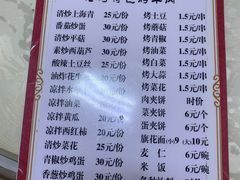 清炒上海青 25元/份 烤土豆 1.5元/串
番茄炒蛋 30元/份 烤蘑菇 1.5元/串
清炒平菇 30元/份 烤青椒 1.5元/串
素炒西葫芦 25元/份 烤油菜 1.5元/串
酸辣土豆丝 25元/份 烤白菜 1.5元/串
油炸花生 烤大蒜 1.5元/串
凉拌木 烤蒜苗 1.5元/串
凉拌油菜 肉夹饼 时价
凉拌黄瓜 20元/份 菜夹饼 6元/个
凉拌西红柿 20元/份 蛋夹饼 6元/个
清炒菜花 25元/份 旗花面(小)9 (大)10元
青椒炒鸡蛋 30元/份 麦仁 6元/碗
香葱炒鸡蛋 30元/份 米饭 6元/碗